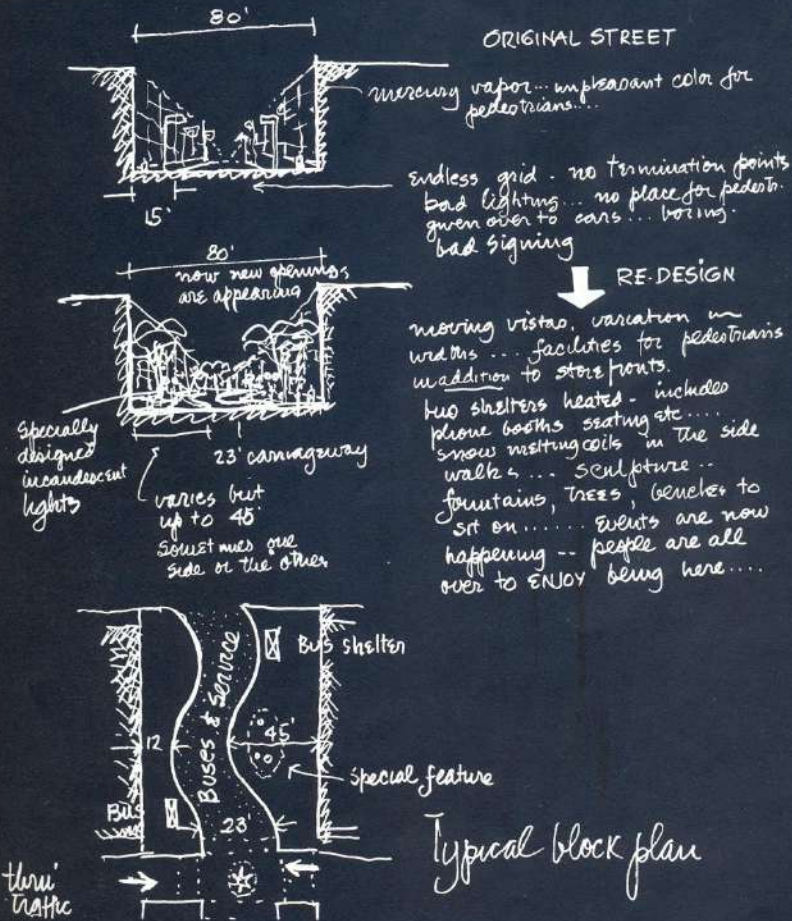 80'
ORIGINAL STREET
mercury vapor... unpleasant color for
pedestrians....
15'
endless grid - no termination points
bad lighting... no place for pedestr.
given over to cars... boring.
bad signing
80'
now new openings
are appearing
RE-DESIGN
moving vistas, variation in
widths .... facilities for pedestrians
in addition to store fronts.
bus shelters heated - includes
phone booths seating etc....
snow melting coils in the side
walks .... sculpture ..
fountains, trees, benches to
sit on...... Events are now
happening -- people are all
over to ENJOY being here....
Specially
designed
incandescent
lights
23' carriageway
varies but
up to 45'
Sometimes one
side or the other
Buses & Service
Bus shelter
12
45'
special feature
Bus
23'
Typical block plan
thru'
Traffic